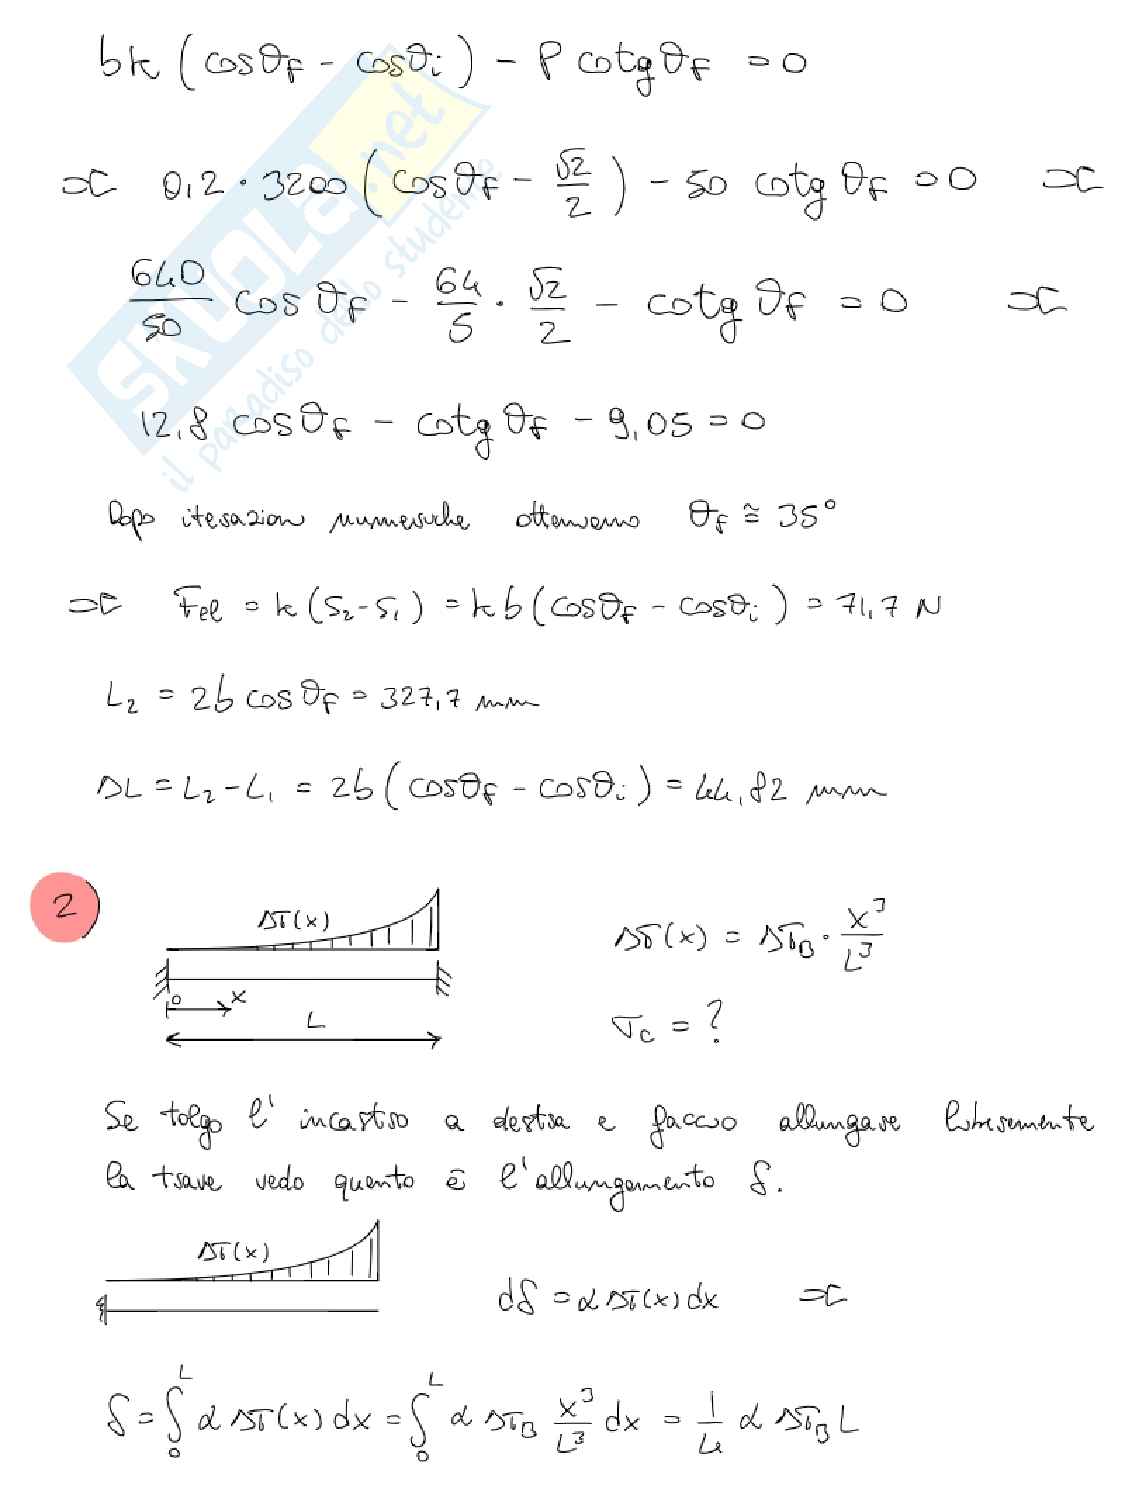 bk (cosθf - cosθi) - P cotg θf = 0
⇒ 0,2 · 3200 (cosθf - √2/2) - 50 cotg θf = 0 ⇒
640/50 cos θf - 64/5 · √2/2 - cotg θf = 0 ⇒
12,8 cosθf - cotg θf - 9,05 = 0
Dopo iterazioni numeriche otteniamo θf ≅ 35°
⇒ Fel = k (S2-S1) = k b (cosθf - cosθi) = 71,7 N
L2 = 2b cosθf = 327,7 mm
ΔL = L2-L1 = 2b (cosθf - cosθi) = 44,82 mm
2)
ΔT(x)
ΔT(x) = ΔTB · x³/L³
0 x
L
σc = ?
Se tolgo l' incastro a destra e faccio allungare liberamente
la trave vedo quanto è l'allungamento δ.
ΔT(x)
dδ = α ΔT(x) dx ⇒
δ = ∫₀ᴸ α ΔT(x) dx = ∫₀ᴸ α ΔTB x³/L³ dx = 1/4 α ΔTB L
SKUOLA.net
il paradiso dello studente